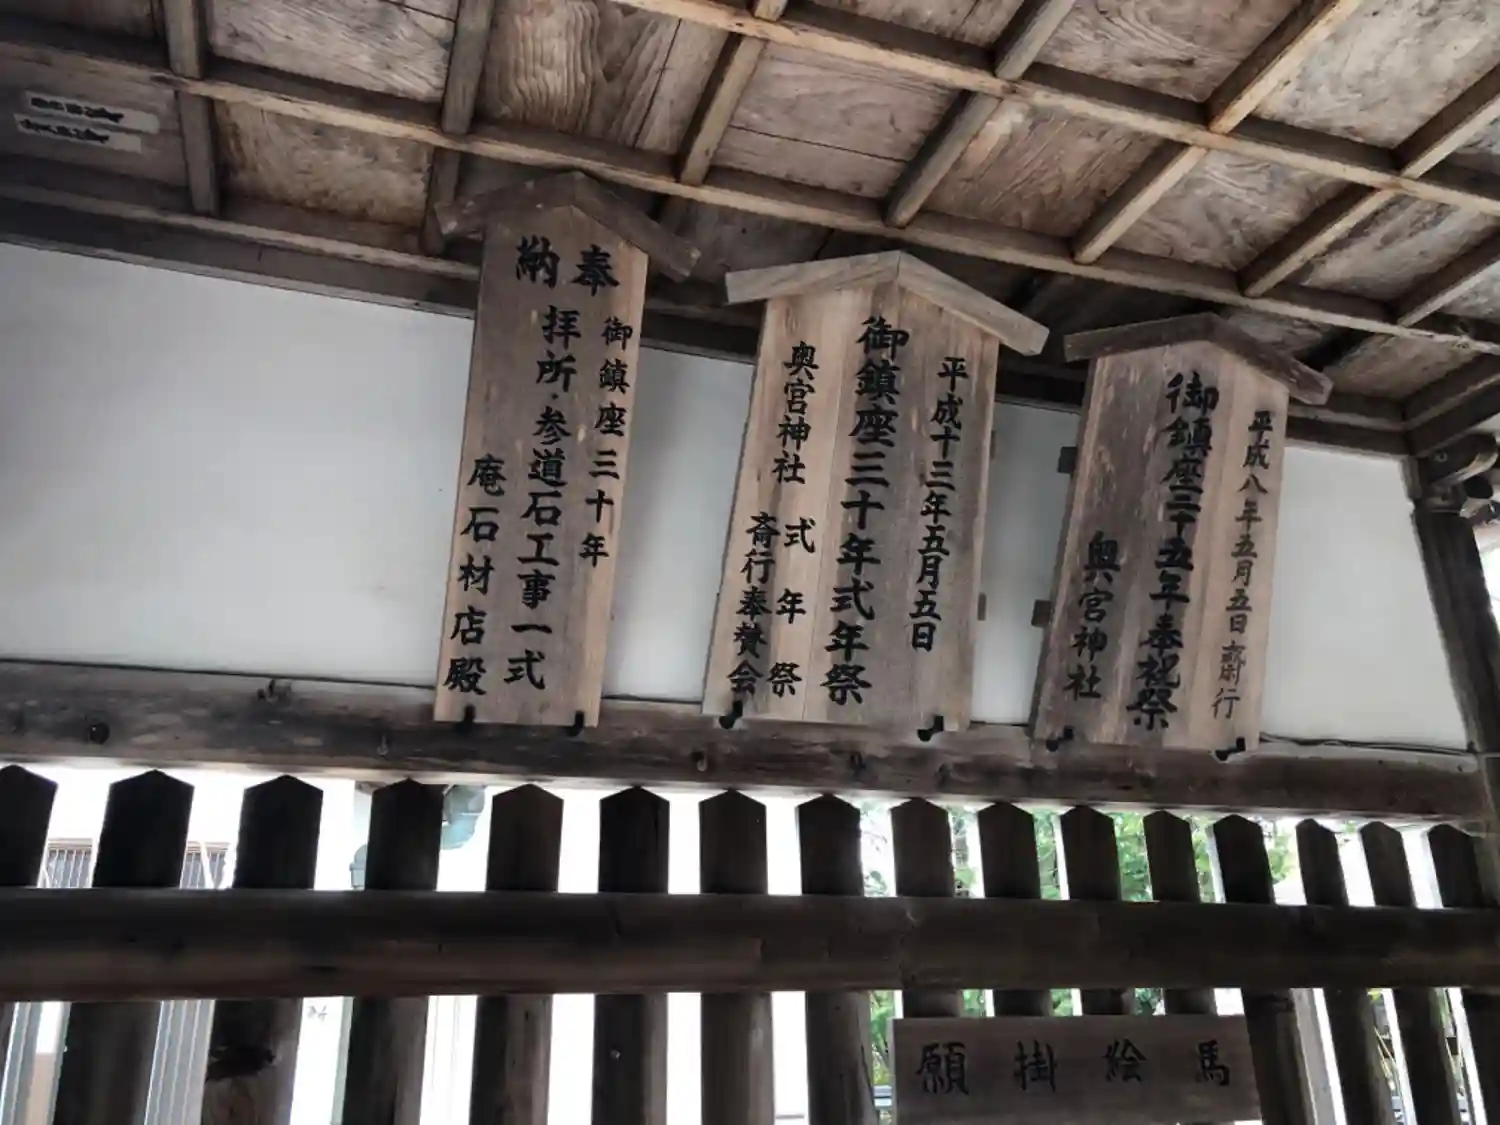 平成八年五月五日 斎行
御鎮座二十五年奉祝祭
奥宮神社
平成十三年五月五日
御鎮座三十年式年祭
奥宮神社 式年祭
斎行奉賛会
奉納
御鎮座三十年
拝所・参道石工事一式
庵石材店殿
願掛絵馬